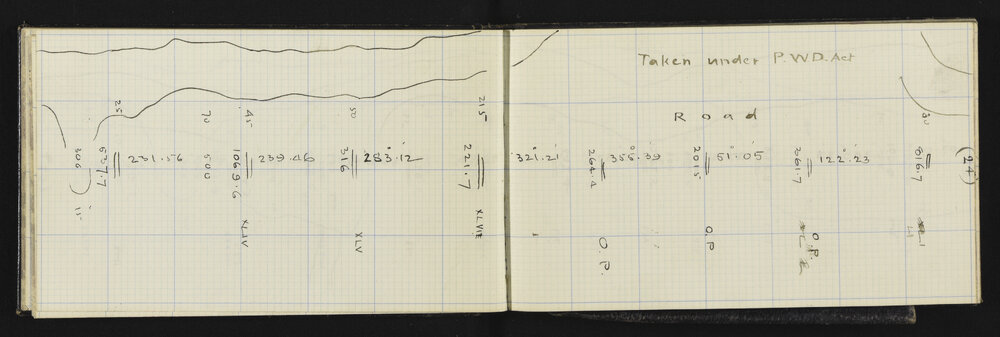 Taken under P.W.D. Act
Road
(24)
25
70
45
50
215
30
306
627.7
231.56
500
1069.6
239.46
316
283.12
221.7
321.21
264.4
356.39
2015
51.05
261.7
122.23
316.7
15
XLIV
XLV
XLVII
O.P.
O.P
O.P.